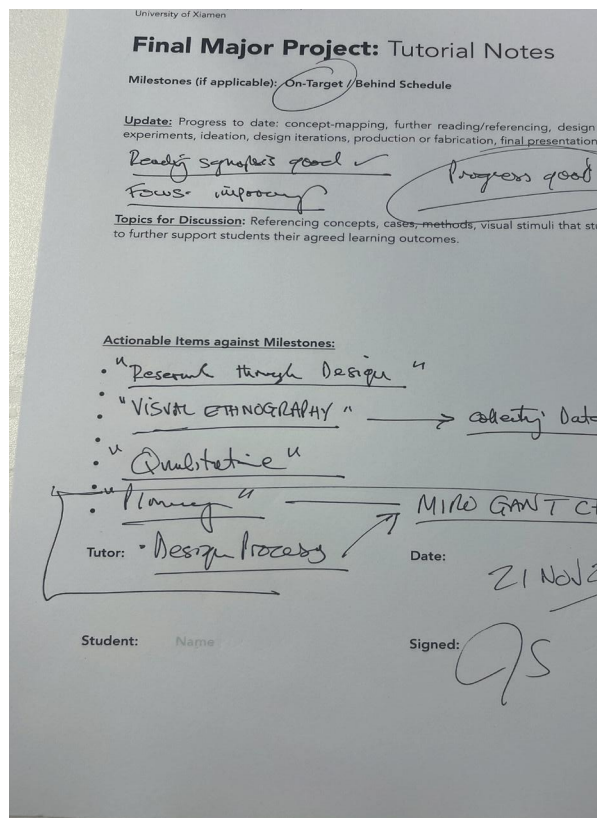 University of Xiamen
Final Major Project: Tutorial Notes
Milestones (if applicable): On-Target / Behind Schedule
Update: Progress to date: concept-mapping, further reading/referencing, design
experiments, ideation, design iterations, production or fabrication, final presentation
good ✓
Progress good
Focus-
Topics for Discussion: Referencing concepts, cases, methods, visual stimuli that
to further support students their agreed learning outcomes.
Actionable Items against Milestones:
• "Research through Design"
• "VISUAL ETHNOGRAPHY" → Data
• "Qualitative"
• "Planning" MIRO GANT
Tutor: • Design Process
Date:
21 NOV
Student: Name
Signed: